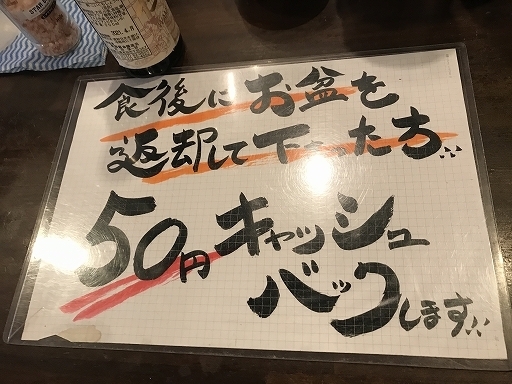 食後にお盆を
返却して下さった方!!
50円キャッシュ
バックします!!